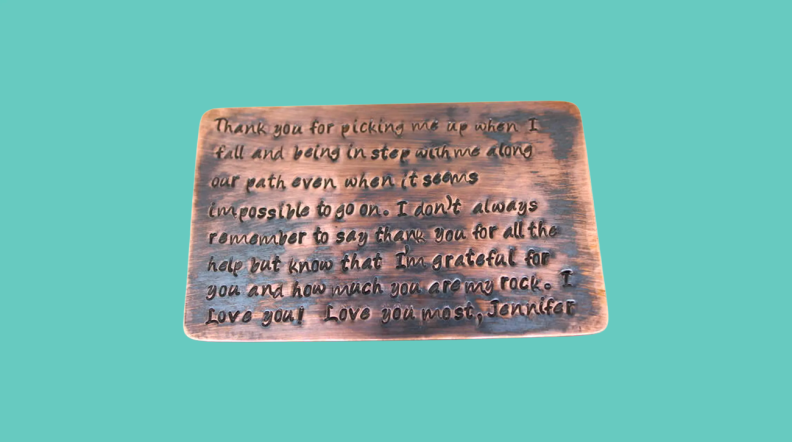 Thank you for picking me up when I
fall and being in step with me along
our path even when it seems
impossible to go on. I don't always
remember to say thank you for all the
help but know that I'm grateful for
you and how much you are my rock. I
Love you! Love you most, Jennifer